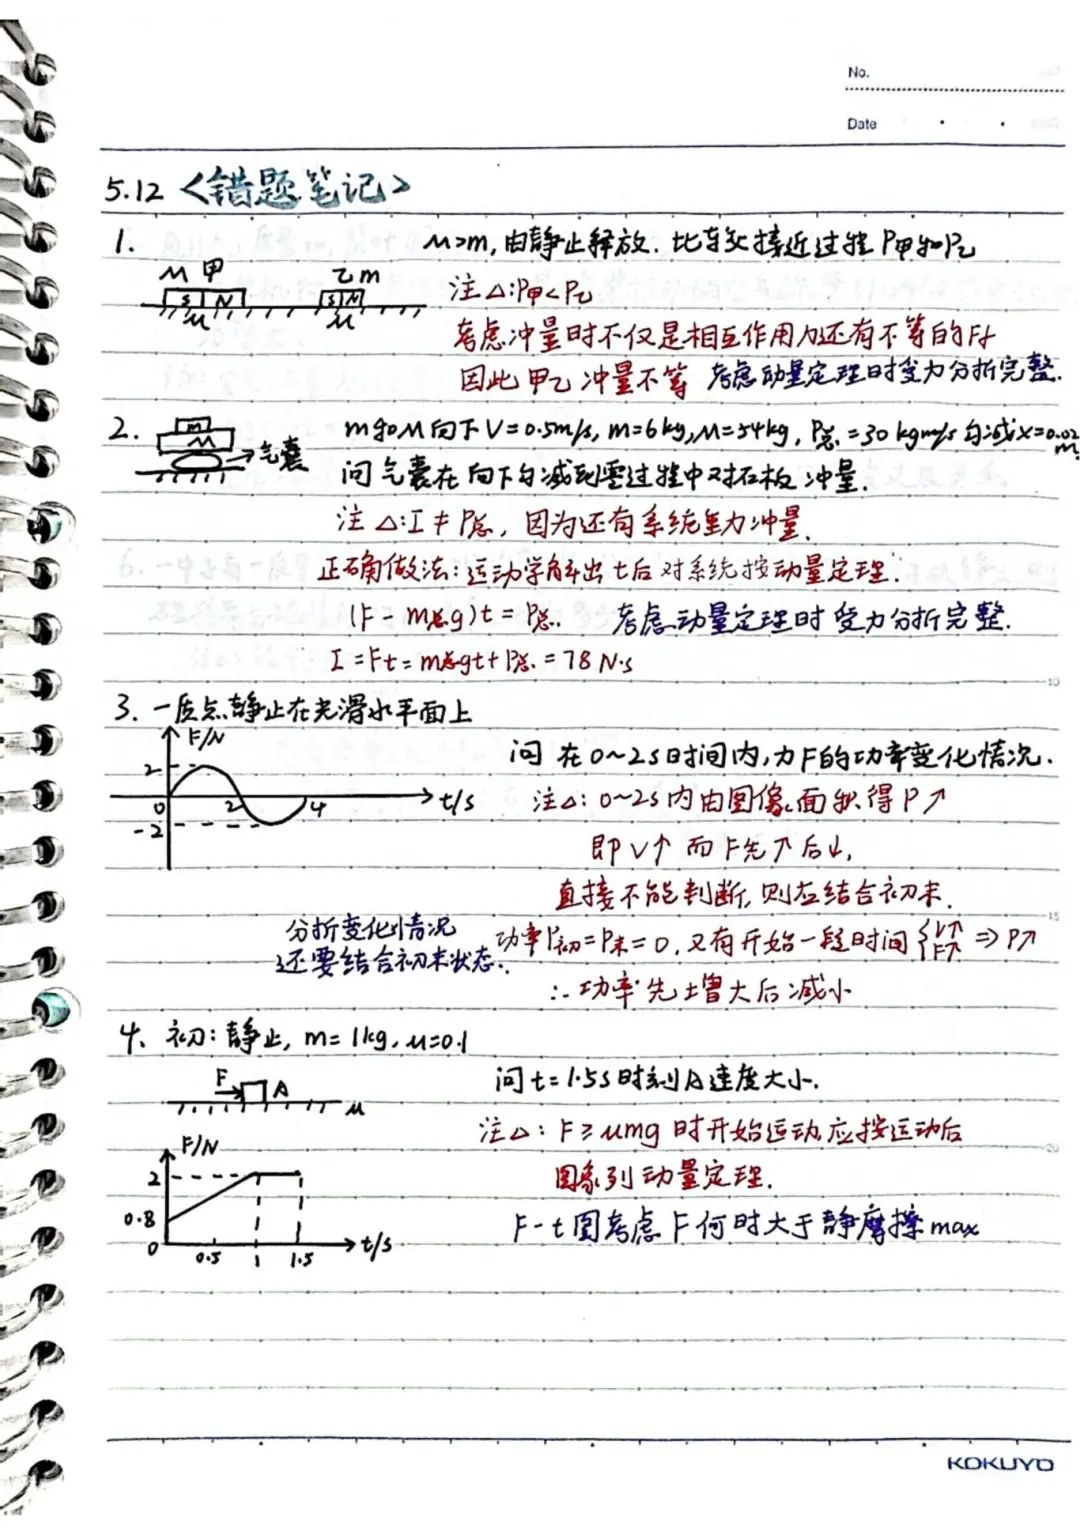 No.
Date
5.12 <错题笔记>
1. M>m, 由静止释放. 比较接近过程 P甲和P乙
M 甲 乙 m
S N S N
μ μ
注△: P甲<P乙
考虑冲量时不仅是相互作用力还有不等的Ff
因此甲乙冲量不等 考虑动量定理时受力分析完整.
2. m和M向下V=0.5m/s, m=6kg, M=54kg, P总.=30kgm/s 匀减x=0.02m.
m
M
气囊
问气囊在向下匀减到零过程中对石板冲量.
注△: I≠P总, 因为还有系统重力冲量.
正确做法: 运动学解出t后对系统按动量定理.
(F-m总g)t=P总. 考虑动量定理时受力分析完整.
I=Ft=m总gt+P总.=78N·s
3. 一质点静止在光滑水平面上
F/N
2
0 2 4 t/s
-2
问在0~2s时间内,力F的功率变化情况.
注△: 0~2s内由图像面积得P↗
即V↑而F先↑后↓,
直接不能判断,则应结合初末.
分析变化情况
还要结合初末状态.
功率P初=P末=0,又有开始一段时间{V↑ F↑ ⇒P↗
∴功率先增大后减小
4、初:静止, m=1kg, μ=0.1
F A
μ
问t=1.5s时刻A速度大小.
注△: F≥μmg时开始运动,应按运动后
图象列动量定理.
F-t图考虑F何时大于静摩擦max
F/N
2
0.8
0 0.5 1 1.5 t/s
KOKUYO